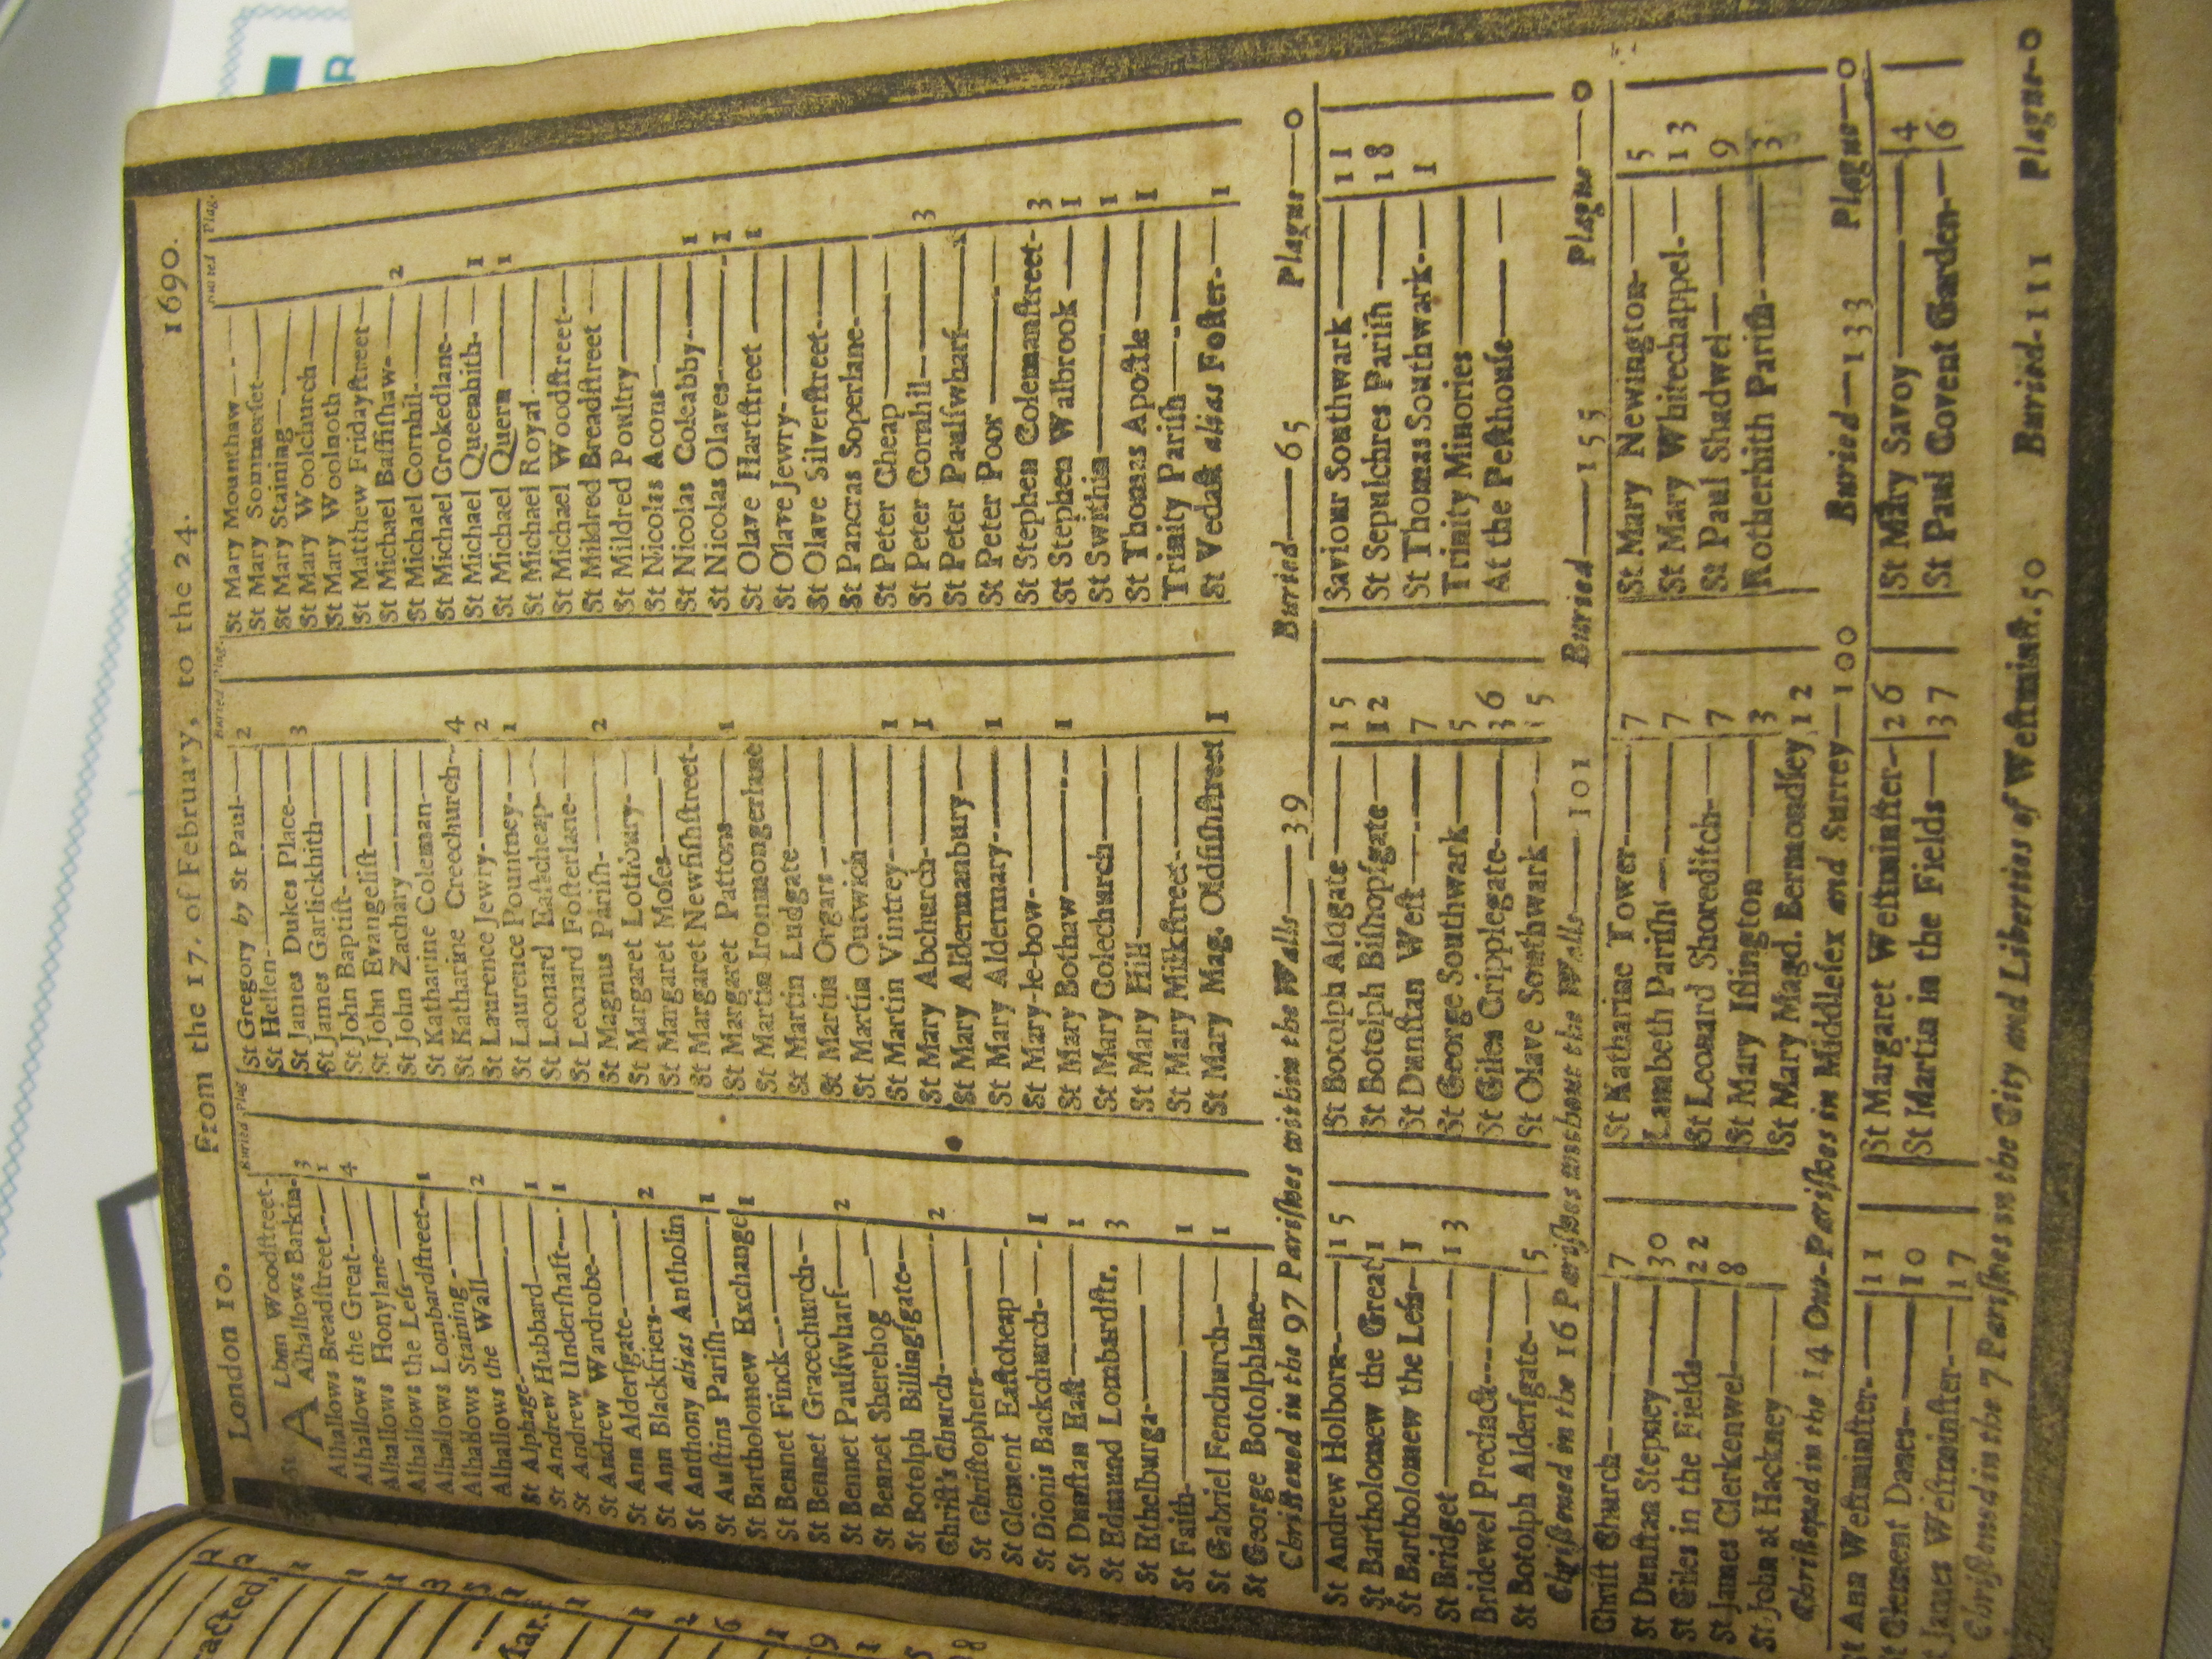 London 10.
From the 17. of February, to the 24.
1690.
Buried Plag
St ALban Woodſtreet-
Alhallows Barkin- 3
Alhallows Breadſtreet— 1
Alhallows the Great— 4
Alhallows Honylane—
Alhallows the Leſs—
Alhallows Lombardſtreet— 1
Alhallows Staining—
Alhallows the Wall— 2
St Alphage—
St Andrew Hubbard— 1
St Andrew Underſhaft— 1
St Andrew Wardrobe—
St Ann Alderſgate—
St Ann Blackfriers— 2
St Anthony alias Antholin
St Auſtins Pariſh— 1
St Bartholomew Exchange 1
St Bennet Finck—
St Bennet Gracechurch—
St Bennet Paulſwharf— 2
St Bennet Sherehog—
St Botolph Billingſgate—
Chriſt's Church— 2
St Chriſtophers—
St Clement Eaſtcheap—
St Dionis Backchurch— 1
St Dunſtan Eaſt— 1
St Edmund Lombardſtr. 3
St Ethelburga—
St Faith— 1
St Gabriel Fenchurch— 1
St George Botolphlane—
Buried Plag.
St Gregory by St Paul— 2
St Hellen—
St James Dukes Place— 3
St James Garlickhith—
St John Baptiſt—
St John Evangeliſt—
St John Zachary—
St Katharine Coleman—
St Katharine Creechurch— 4
St Laurence Jewry— 2
St Laurence Pountney— 1
St Leonard Eaſtcheap—
St Leonard Foſterlane—
St Magnus Pariſh— 2
St Margaret Lothbury—
St Margaret Moſes—
St Margaret Newfiſhſtreet-
St Margaret Pattons— 1
St Martin Ironmongerlane
St Martin Ludgate—
St Martin Orgars—
St Martin Outwich—
St Martin Vintrey— 1
St Mary Abchurch— 1
St Mary Aldermanbury—
St Mary Aldermary— 1
St Mary-le-bow—
St Mary Bothaw— 1
St Mary Colechurch—
St Mary Hill—
St Mary Milkſtreet—
St Mary Mag. Oldfiſhſtreet 1
Buried Plag.
St Mary Mounthaw—
St Mary Sommerſet—
St Mary Staining—
St Mary Woolchurch—
St Mary Woolnoth—
St Matthew Fridayſtreet—
St Michael Baſſiſhaw— 2
St Michael Cornhil—
St Michael Crokedlane—
St Michael Queenhith— 1
St Michael Quern— 1
St Michael Royal—
St Michael Woodſtreet—
St Mildred Breadſtreet—
St Mildred Poultry—
St Nicolas Acons—
St Nicolas Coleabby— 1
St Nicolas Olaves— 1
St Olave Hartſtreet— 1
St Olave Jewry—
St Olave Silverſtreet—
St Pancras Soperlane—
St Peter Cheap—
St Peter Cornhil— 3
St Peter Paulſwharf—
St Peter Poor—
St Stephen Colemanſtreet- 3
St Stephen Walbrook— 1
St Swithin— 1
St Thomas Apoſtle— 1
Trinity Pariſh—
St Vedaſt alias Foſter— 1
Chriſtened in the 97 Pariſhes within the Walls—39 Buried—65 Plague—0
St Andrew Holborn— 15
St Bartholomew the Great 1
St Bartholomew the Leſs— 1
St Bridget— 13
Bridewel Precinct—
St Botolph Alderſgate— 5
St Botolph Aldgate— 15
St Botolph Biſhopſgate— 12
St Dunſtan Weſt— 7
St George Southwark— 5
St Giles Cripplegate— 36
St Olave Southwark— 15
Saviour Southwark— 11
St Sepulchres Pariſh— 18
St Thomas Southwark— 1
Trinity Minories—
At the Peſthouſe—
Chriſtened in the 16 Pariſhes without the Walls—101 Buried—155 Plague—0
Chriſt Church— 7
St Dunſtan Stepney— 30
St Giles in the Fields— 22
St James Clerkenwel— 8
St John at Hackney—
St Katharine Tower— 7
Lambeth Pariſh— 7
St Leonard Shoreditch— 7
St Mary Iſlington— 3
St Mary Magd. Bermondſey 12
St Mary Newington— 5
St Mary Whitechappel— 13
St Paul Shadwel— 9
Rotherhith Pariſh— 3
Chriſtened in the 14 Out-Pariſhes in Middleſex and Surrey—100 Buried—133 Plague—0
St Ann Weſtminſter— 11
St Clement Danes— 10
St James Weſtminſter— 17
St Margaret Weſtminſter— 26
St Martin in the Fields— 37
St Mary Savoy— 4
St Paul Covent Garden— 6
Chriſtened in the 7 Pariſhes in the City and Liberties of Weſtminſt. 50 Buried-111 Plague-0